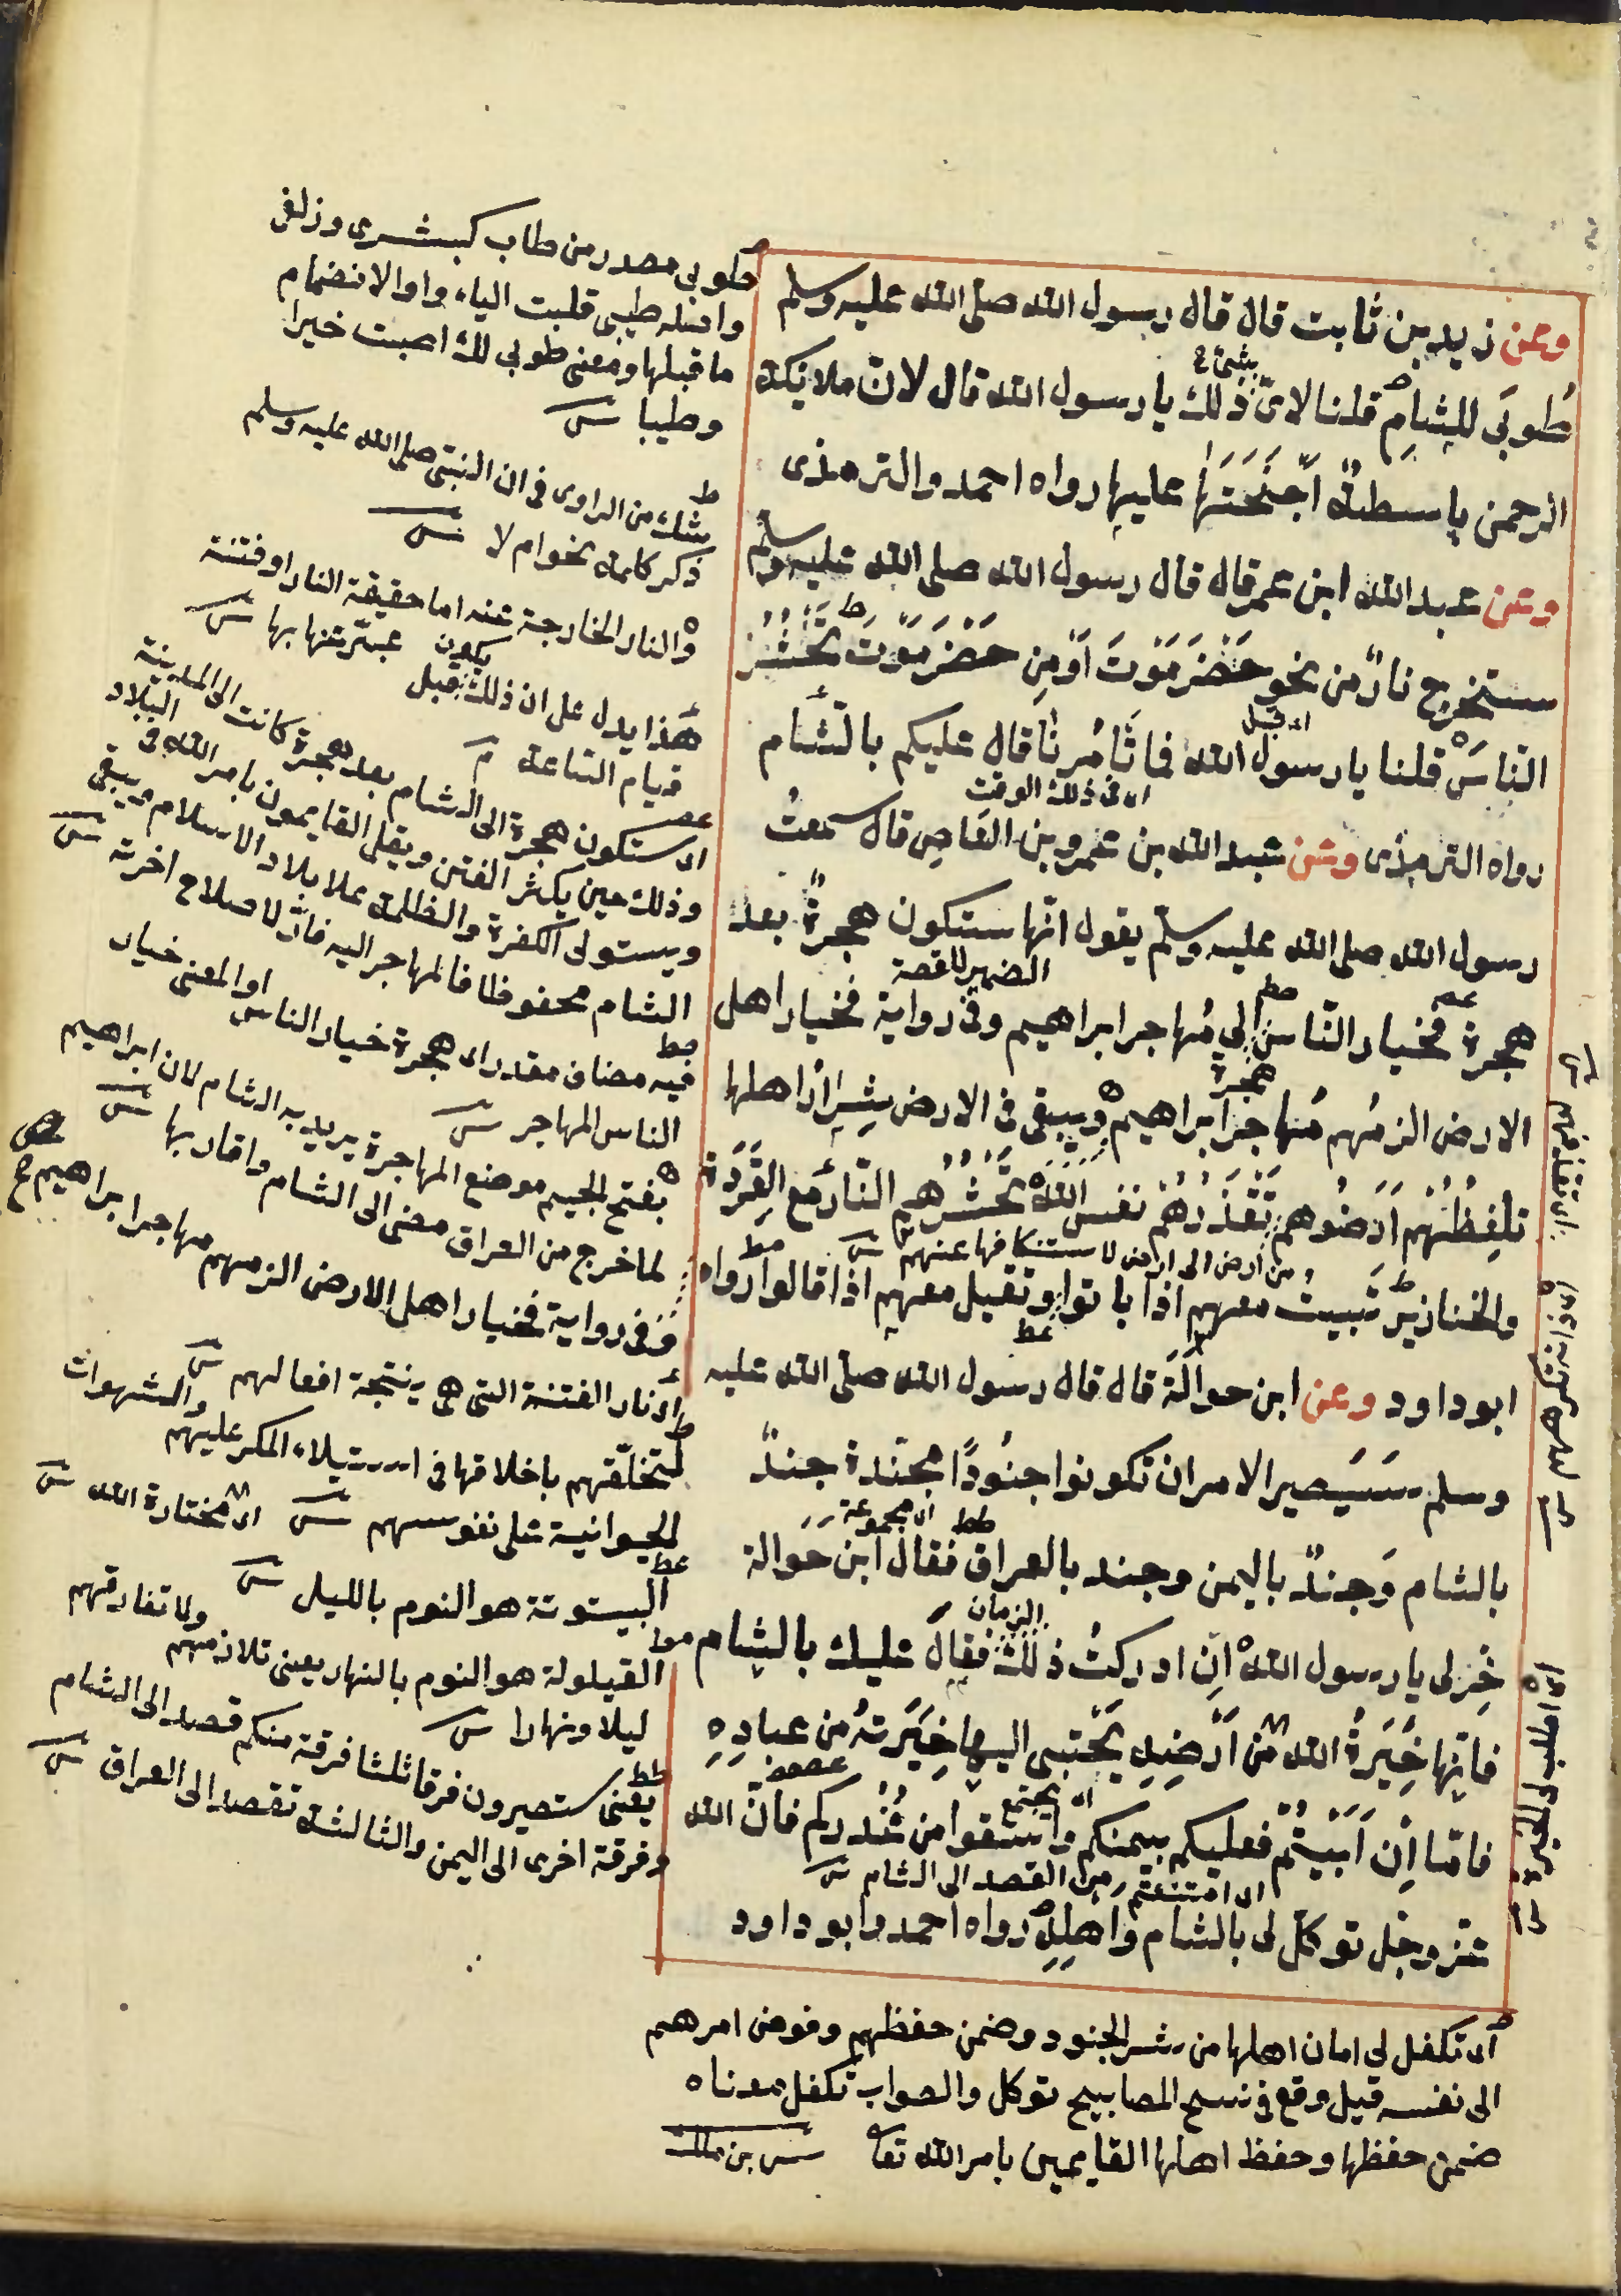 وعن زيد بن ثابت قال قال رسول الله صلى الله عليه وسلم
طُوبَى للشامِ قلنا لاىّ ذلك يا رسول الله قال لانّ ملايكة
الرحمن باسطةٌ اَجْنِحَتَهَا عليها رواه احمد والترمذى
وعن عبد الله ابن عمر قال قال رسول الله صلى الله عليه وسلم
ستخرج نارٌ من نحو حَضْرَمَوْتَ اَوْ مِن حَضْرَمَوْتَ تَحْشُرُ
النّاسَ قلنا يا رسول الله فما تَأمُرنَا قال عليكم بالشَّام
رواه الترمذى وعن عبد الله بن عمرو بن العَاصِ قال سمعتُ
رسول الله صلى الله عليه وسلم يقول انّها ستكون هجرةٌ بعد
هجرةٍ فخيار النّاس الى مُهاجر ابراهيم وفى رواية فخيار اهل
الارض الزمُهم مُهاجرَ ابراهيم ويبقى فى الارض شِرارُ اهلها
تلفِظُهُم اَرَضُوهم تَقْذَرُهُمْ نفس الله تَحْشُرُهم النّار مع القِرَدَة
والخنازير تبيتُ معهم اذا باتوا وتقيل معهم اذا قالوا رواه
ابو داود وعن ابن حوالَة قال قال رسول الله صلى الله عليه
وسلم سَيَصير الامر ان تكونوا جنُودًا مجنّدة جندٌ
بالشام وَجندٌ باليمن وجند بالعراق فقال ابن حَوَالة
خِر لى يا رسول الله اِن ادركتُ ذلك فقال عليك بالشام
فانّها خِيَرَةُ الله من اَرْضِهِ يَجْتبى اليها خِيَرَتهُ من عبادِهِ
فامّا اِن اَبَيْتُمْ فعليكم بيمنكم واسقوا من غُدُركم فانّ الله
عزّ وجلّ توكلّ لى بالشام واَهلِهِ رواه احمد وابو داود
بشئ
اى قبل
اى فى ذلك الوقت
الضمير للقصة
هجرة
من ارض الى ارض لاستنكافها عنهم
اى مجموعة
الزمان
اى يجتمع
اى امتنعتم من القصد الى الشام
طوبى مصدر من طاب كبشرى وزلفى
واصله طيبى قلبت الياء واوا لانضمام
ما قبلها ومعنى طوبى لك اصبت خيرا
وطيبا
شك من الراوى فى ان النبىّ صلى الله عليه وسلم
ذكر كلمة نحو ام لا
والنار الخارجة عنه اما حقيقة النار او فتنة
عبّر عنها بها
هذا يدل على ان ذلك يكون قبل
قيام الساعة
اى ستكون هجرة الى الشام بعد هجرة كانت الى المدينة
وذلك حين يكثر الفتن ويقل القايمون بامر الله فى البلاد
ويستولى الكفرة والظلمة على بلاد الاسلام ويبقى
الشام محفوظا فالمهاجر اليه فاز لاصلاح اخرته
فيه مضاف مقدر اى هجرة خيار الناس او المعنى خيار
الناس المهاجر
بفتح الجيم موضع المهاجرة يريد به الشام لان ابراهيم
لما خرج من العراق مضى الى الشام واقام بها
وفى رواية فخيار اهل الارض الزمهم مهاجر ابراهيم
اى نار الفتنة التى هى نتيجة افعالهم
لتخلّقهم باخلاقها فى استيلاء المكر عليهم والشهوات
الحيوانية على نفوسهم
اى مختارة الله
البيتوتة هو النوم بالليل
القيلولة هو النوم بالنهار يعنى تلازمهم ولا تفارقهم
ليلا ونهارا
يعنى ستصيرون فرقا ثلثا فرقة منكم قصد الى الشام
وفرقة اخرى الى اليمن والثالثة تقصد الى العراق
اى تكفل لى امان اهلها من شر الجنود وضمن حفظهم وفوض امرهم
الى نفسه قيل وقع فى نسخ المصابيح توكل والصواب تكفل معناه
ضمن حفظها وحفظ اهلها القايمين بامر الله تعا